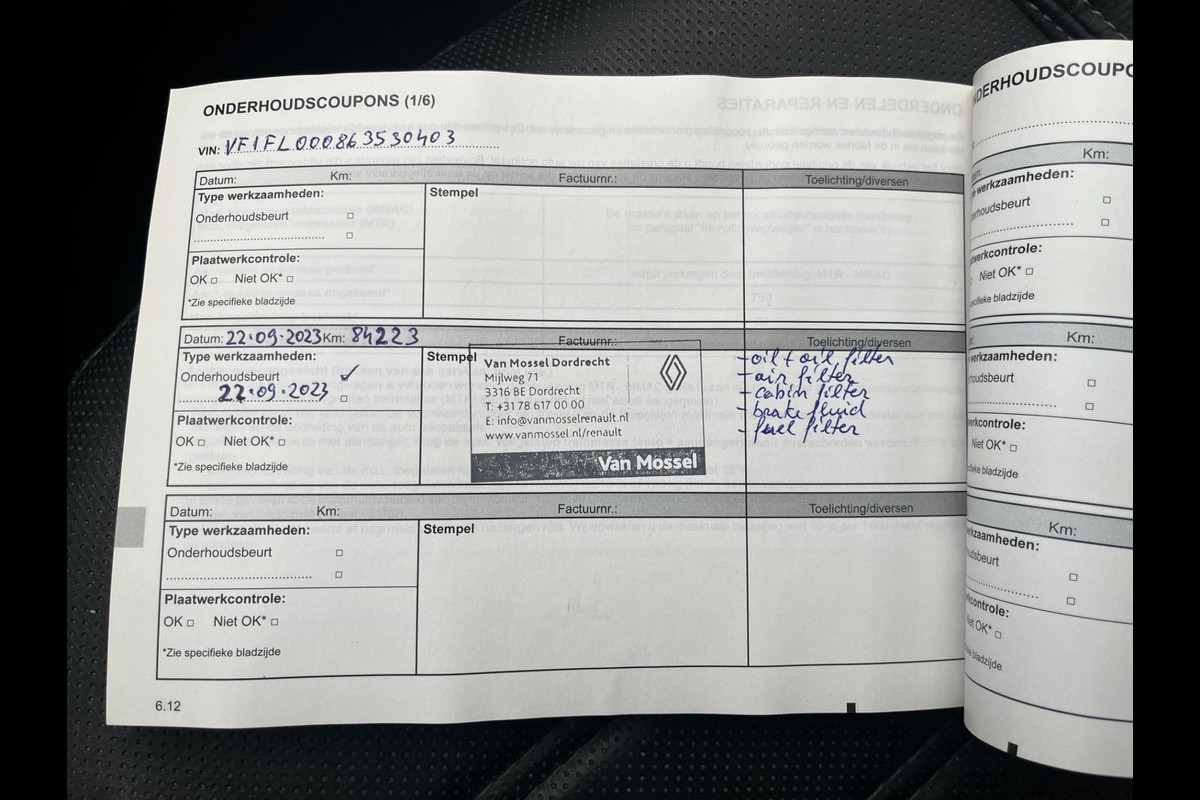 ONDERHOUDSCOUPONS (1/6)
VIN: VF1FL000863530403
Datum: Km: Factuurnr.: Toelichting/diversen
Type werkzaamheden: Stempel
Onderhoudsbeurt
Plaatwerkcontrole:
OK Niet OK*
*Zie specifieke bladzijde
Datum: 22.09.2023 Km: 84223 Factuurnr.: Toelichting/diversen
Type werkzaamheden: Stempel
Onderhoudsbeurt ✓
22.09.2023
Plaatwerkcontrole:
OK Niet OK*
*Zie specifieke bladzijde
Van Mossel Dordrecht
Mijlweg 71
3316 BE Dordrecht
T: +31 78 617 00 00
E: info@vanmosselrenault.nl
www.vanmossel.nl/renault
Van Mossel
- oil + oil filter
- air filter
- cabin filter
- brake fluid
- fuel filter
Datum: Km: Factuurnr.: Toelichting/diversen
Type werkzaamheden: Stempel
Onderhoudsbeurt
Plaatwerkcontrole:
OK Niet OK*
*Zie specifieke bladzijde
6.12
NDERHOUDSCOUPO
Km:
werkzaamheden:
houdsbeurt
werkcontrole:
Niet OK*
specifieke bladzijde
Km:
werkzaamheden:
houdsbeurt
werkcontrole:
Niet OK*
fieke bladzijde
Km:
rkzaamheden:
dsbeurt
controle:
iet OK*
fieke bladzijde